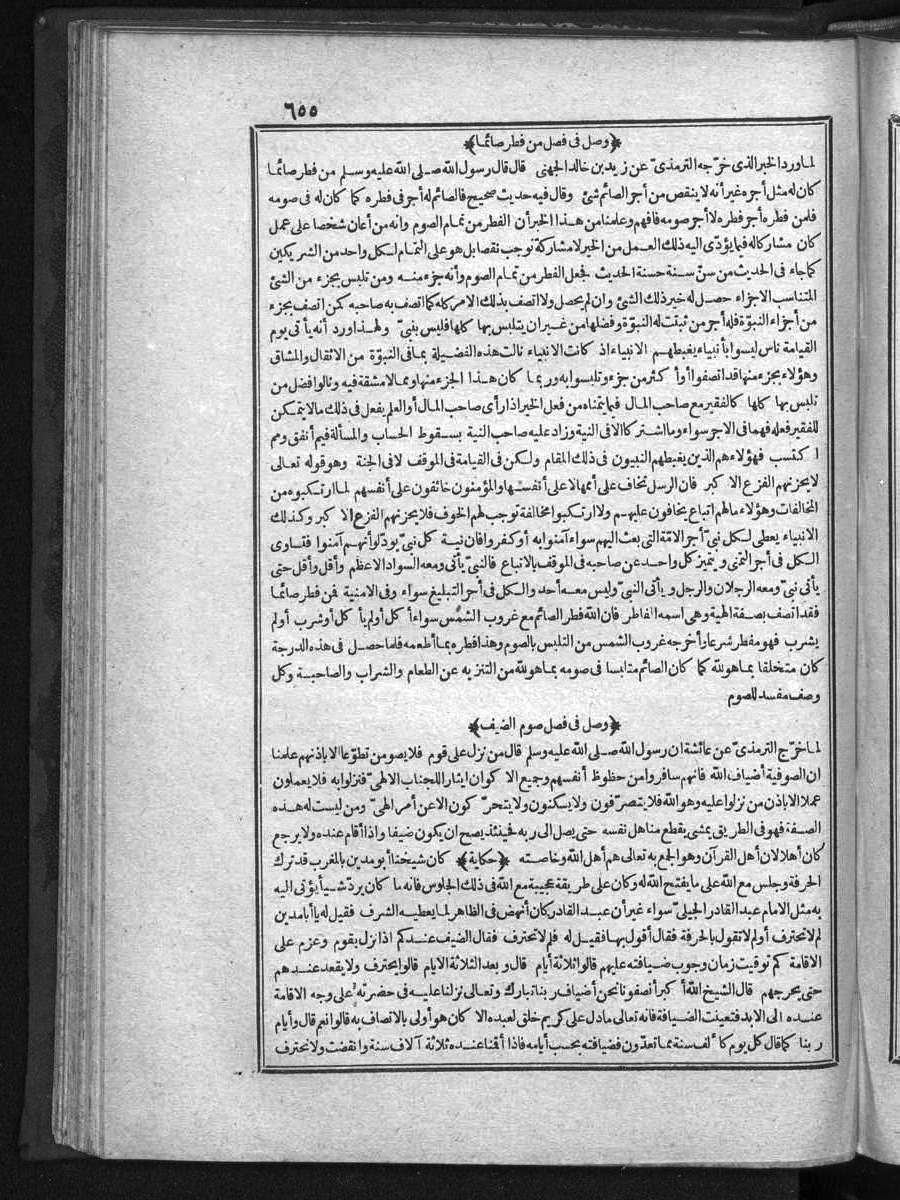 ٦٥٥
﴿وصل فى فصل من فطر صائما﴾
لما ورد الخبر الذى خرّجه الترمذىّ عن زيد بن خالد الجهنى قال قال رسول الله صلى الله عليه وسلم من فطر صائما
كان له مثل أجره غير أنه لا ينقص من أجر الصائم شئ وقال فيه حديث صحيح فالصائم له أجر فى فطره كما كان له فى صومه
فلمن فطره أجر فطره لا أجر صومه فافهم وعلمنا من هذا الخبر أن الفطر من تمام الصوم وانه من أعان شخصا على عمل
كان مشاركاله فيما يؤدّى اليه ذلك العمل من الخبر لا مشاركة توجب نقصا بل هو على التمام لكل واحد من الشريكين
كما جاء فى الحديث من سنّ سنة حسنة الحديث فجعل الفطر من تمام الصوم وأنه جزء منه ومن تلبس بجزء من الشئ
المتناسب الاجزاء حصل له خير ذلك الشئ وان لم يحصل ولا اتصف بذلك الامر كله كما اتصف به صاحبه كمن اتصف بجزء
من أجزاء النبوّة فله أجر من ثبتت له النبوّة وفضلها من غير ان يتلبس بها كلها فليس بنبىّ ولهذا ورد أنه يأتى يوم
القيامة ناس ليسوا بأنبياء يغبطهم الانبياء اذ كانت الانبياء نالت هذه الفضيلة بما فى النبوّة من الاثقال والمشاق
وهؤلاء بجزء منها قد اتصفوا أو أكثر من جزء وتلبسوا به وربما كان هذا الجزء منها مما لا مشقة فيه ونالوا فضل من
تلبس بها كلها كالفقير مع صاحب المال فيما يتمناه من فعل الخير اذا رأى صاحب المال أو العلم يفعل فى ذلك ما لا يتمكن
للفقير فعله فهما فى الاجر سواء وما اشتركا الا فى النية وزاد عليه صاحب النية بسقوط الحساب والمسألة فيم أنفق ومم
اكتسب فهؤلاء هم الذين يغبطهم النبيون فى ذلك المقام ولكن فى القيامة فى الموقف لا فى الجنة وهو قوله تعالى
لا يحزنهم الفزع الاكبر فان الرسل تخاف على أممها لا على أنفسها والمؤمنون خائفون على أنفسهم لما ارتكبوه من
المخالفات وهؤلاء ما لهم اتباع يخافون عليهم ولا ارتكبوا مخالفة توجب لهم الخوف فلا يحزنهم الفزع الاكبر وكذلك
الانبياء يعطى لكل نبىّ أجر الامّة التى بعث اليهم سواء آمنوا به أو كفروا فان نية كل نبىّ يودّ لو أنهم آمنوا فتساوى
الكل فى أجر التمنى ويتميز كل واحد عن صاحبه فى الموقف بالاتباع فالنبىّ يأتى ومعه السواد الاعظم وأقل وأقل حتى
يأتى نبىّ ومعه الرجلان والرجل ويأتى النبىّ وليس معه أحد والكل فى أجر التبليغ سواء وفى الامنية فمن فطر صائما
فقد اتصف بصفة الهية وهى اسمه الفاطر فان الله فطر الصائم مع غروب الشمس سواء أكل أو لم يأكل أو شرب أو لم
يشرب فهو مفطر شرعا وأخرجه غروب الشمس من التلبس بالصوم وهذا فطره بما أطعمه فلما حصل فى هذه الدرجة
كان متخلقا بما هو لله كما كان الصائم متلبسا فى صومه بما هو لله من التنزيه عن الطعام والشراب والصاحبة وكل
وصف مفسد للصوم
﴿وصل فى فصل صوم الضيف﴾
لما خرّج الترمذىّ عن عائشة ان رسول الله صلى الله عليه وسلم قال من نزل على قوم فلا يصومن تطوّعا الا باذنهم علمنا
ان الصوفية أضياف الله فانهم سافروا من حظوظ أنفسهم وجميع الاكوان ايثارا للجناب الالهىّ فنزلوا به فلا يعملون
عملا الا باذن من نزلوا عليه وهو الله فلا يتصرّفون ولا يسكنون ولا يتحرّكون الا عن أمر الهىّ ومن ليست له هذه
الصفة فهو فى الطريق يمشى يقطع مناهل نفسه حتى يصل الى ربه فحينئذ يصح ان يكون ضيفا واذا أقام عنده ولا يرجع
كان أهلا لان أهل القرآن وهو الجمع به تعالى هم أهل الله وخاصته ﴿حكاية﴾ كان شيخنا أبو مدين بالمغرب قد ترك
الحرفة وجلس مع الله على ما يفتح الله له وكان على طريقة عجيبة مع الله فى ذلك الجلوس فانه ما كان يردّ شيأ يؤتى اليه
به مثل الامام عبد القادر الجيلىّ سواء غير أن عبد القادر كان أنهض فى الظاهر لما يعطيه الشرف فقيل له يا أبا مدين
لم لا تحترف أو لم لا تقول بالحرفة فقال أقول بها فقيل له فلم لا تحترف فقال الضيف عندكم اذا نزل بقوم وعزم على
الاقامة كم توقيت زمان وجوب ضيافته عليهم قالوا ثلاثة أيام قال وبعد الثلاثة الايام قالوا يحترف ولا يقعد عندهم
حتى يحرجهم قال الشيخ الله أكبر أنصفونا نحن أضياف ربنا تبارك وتعالى نزلنا عليه فى حضرته على وجه الاقامة
عنده الى الابد فتعينت الضيافة فانه تعالى ما دل على كريم خلق لعبده الا كان هو أولى بالاتصاف به قالوا نعم قال وأيام
ربنا كما قال كل يوم كألف سنة مما تعدّون فضيافته بحسب أيامه فاذا أقمنا عنده ثلاثة آلاف سنة وانقضت ولا نحترف